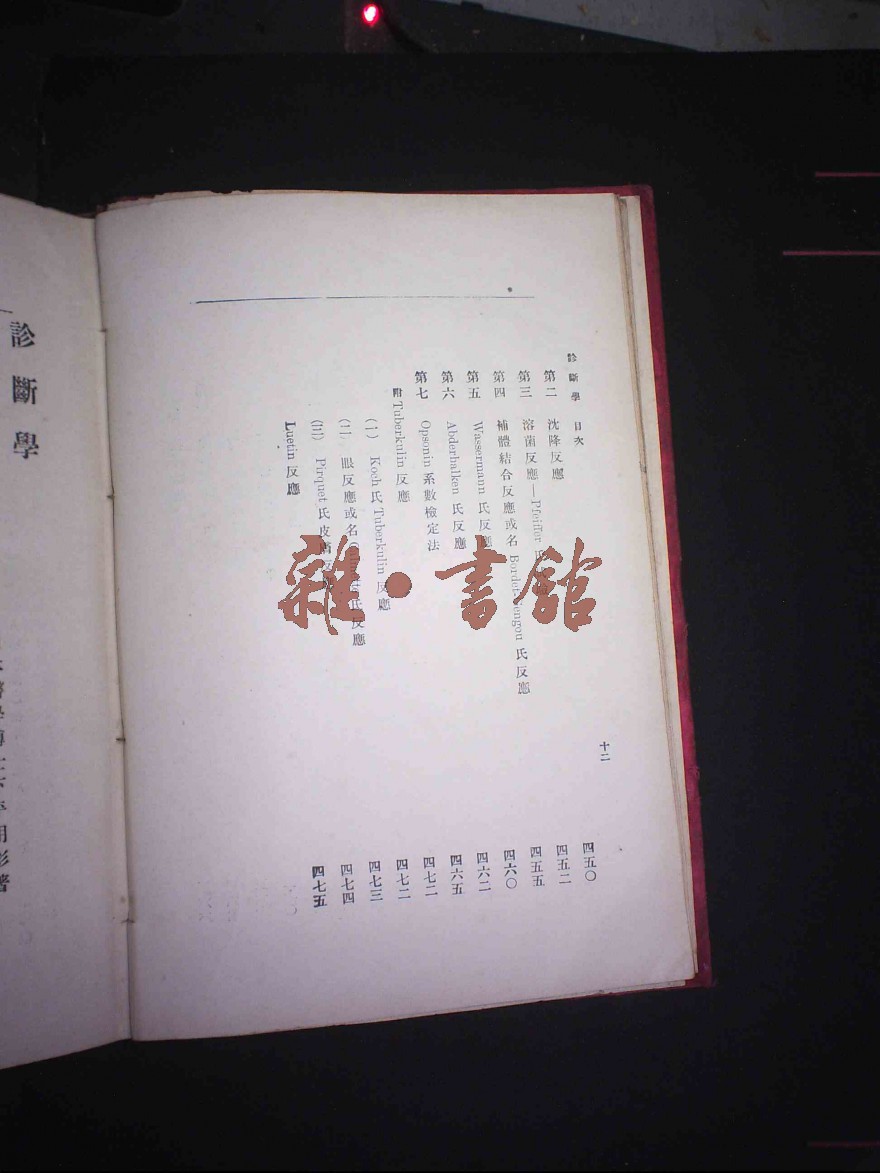 診斷學 目次 十二
第二 沈降反應 四五〇
第三 溶菌反應—Pfeiffer 氏 四五二
第四 補體結合反應或名 Bordet-Gengou 氏反應 四五五
第五 Wassermann 氏反應 四六〇
第六 Abderhalken 氏反應 四六二
第七 Opsonin 系數檢定法 四六五
附 Tuberkulin 反應 四七二
(一) Koch 氏 Tuberkulin 反應 四七二
(二) 眼反應或名 氏反應 四七三
(三) Pirquet 氏皮膚反 四七四
Luetin 反應 四七五
診斷學
醫學博士下平用彩著
雜·書舘